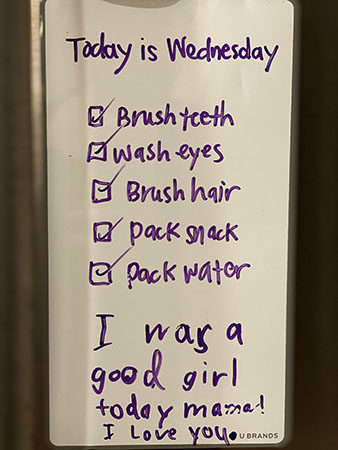 Today is Wednesday
☑ Brush teeth
☑ wash eyes
☑ Brush hair
☑ pack snack
☑ pack water
I was a
good girl
today mama!
I Love you.
U BRANDS